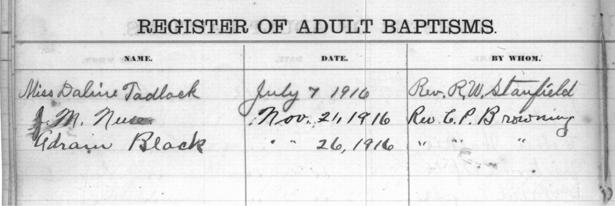 REGISTER OF ADULT BAPTISMS.
NAME. DATE. BY WHOM.
Miss Daline Tadlock July 7 1916 Rev. R.W. Stanfield
J. M. Nov. 21, 1916 Rev. C. P. Browning
Adrain Black " " 26, 1916 " " "